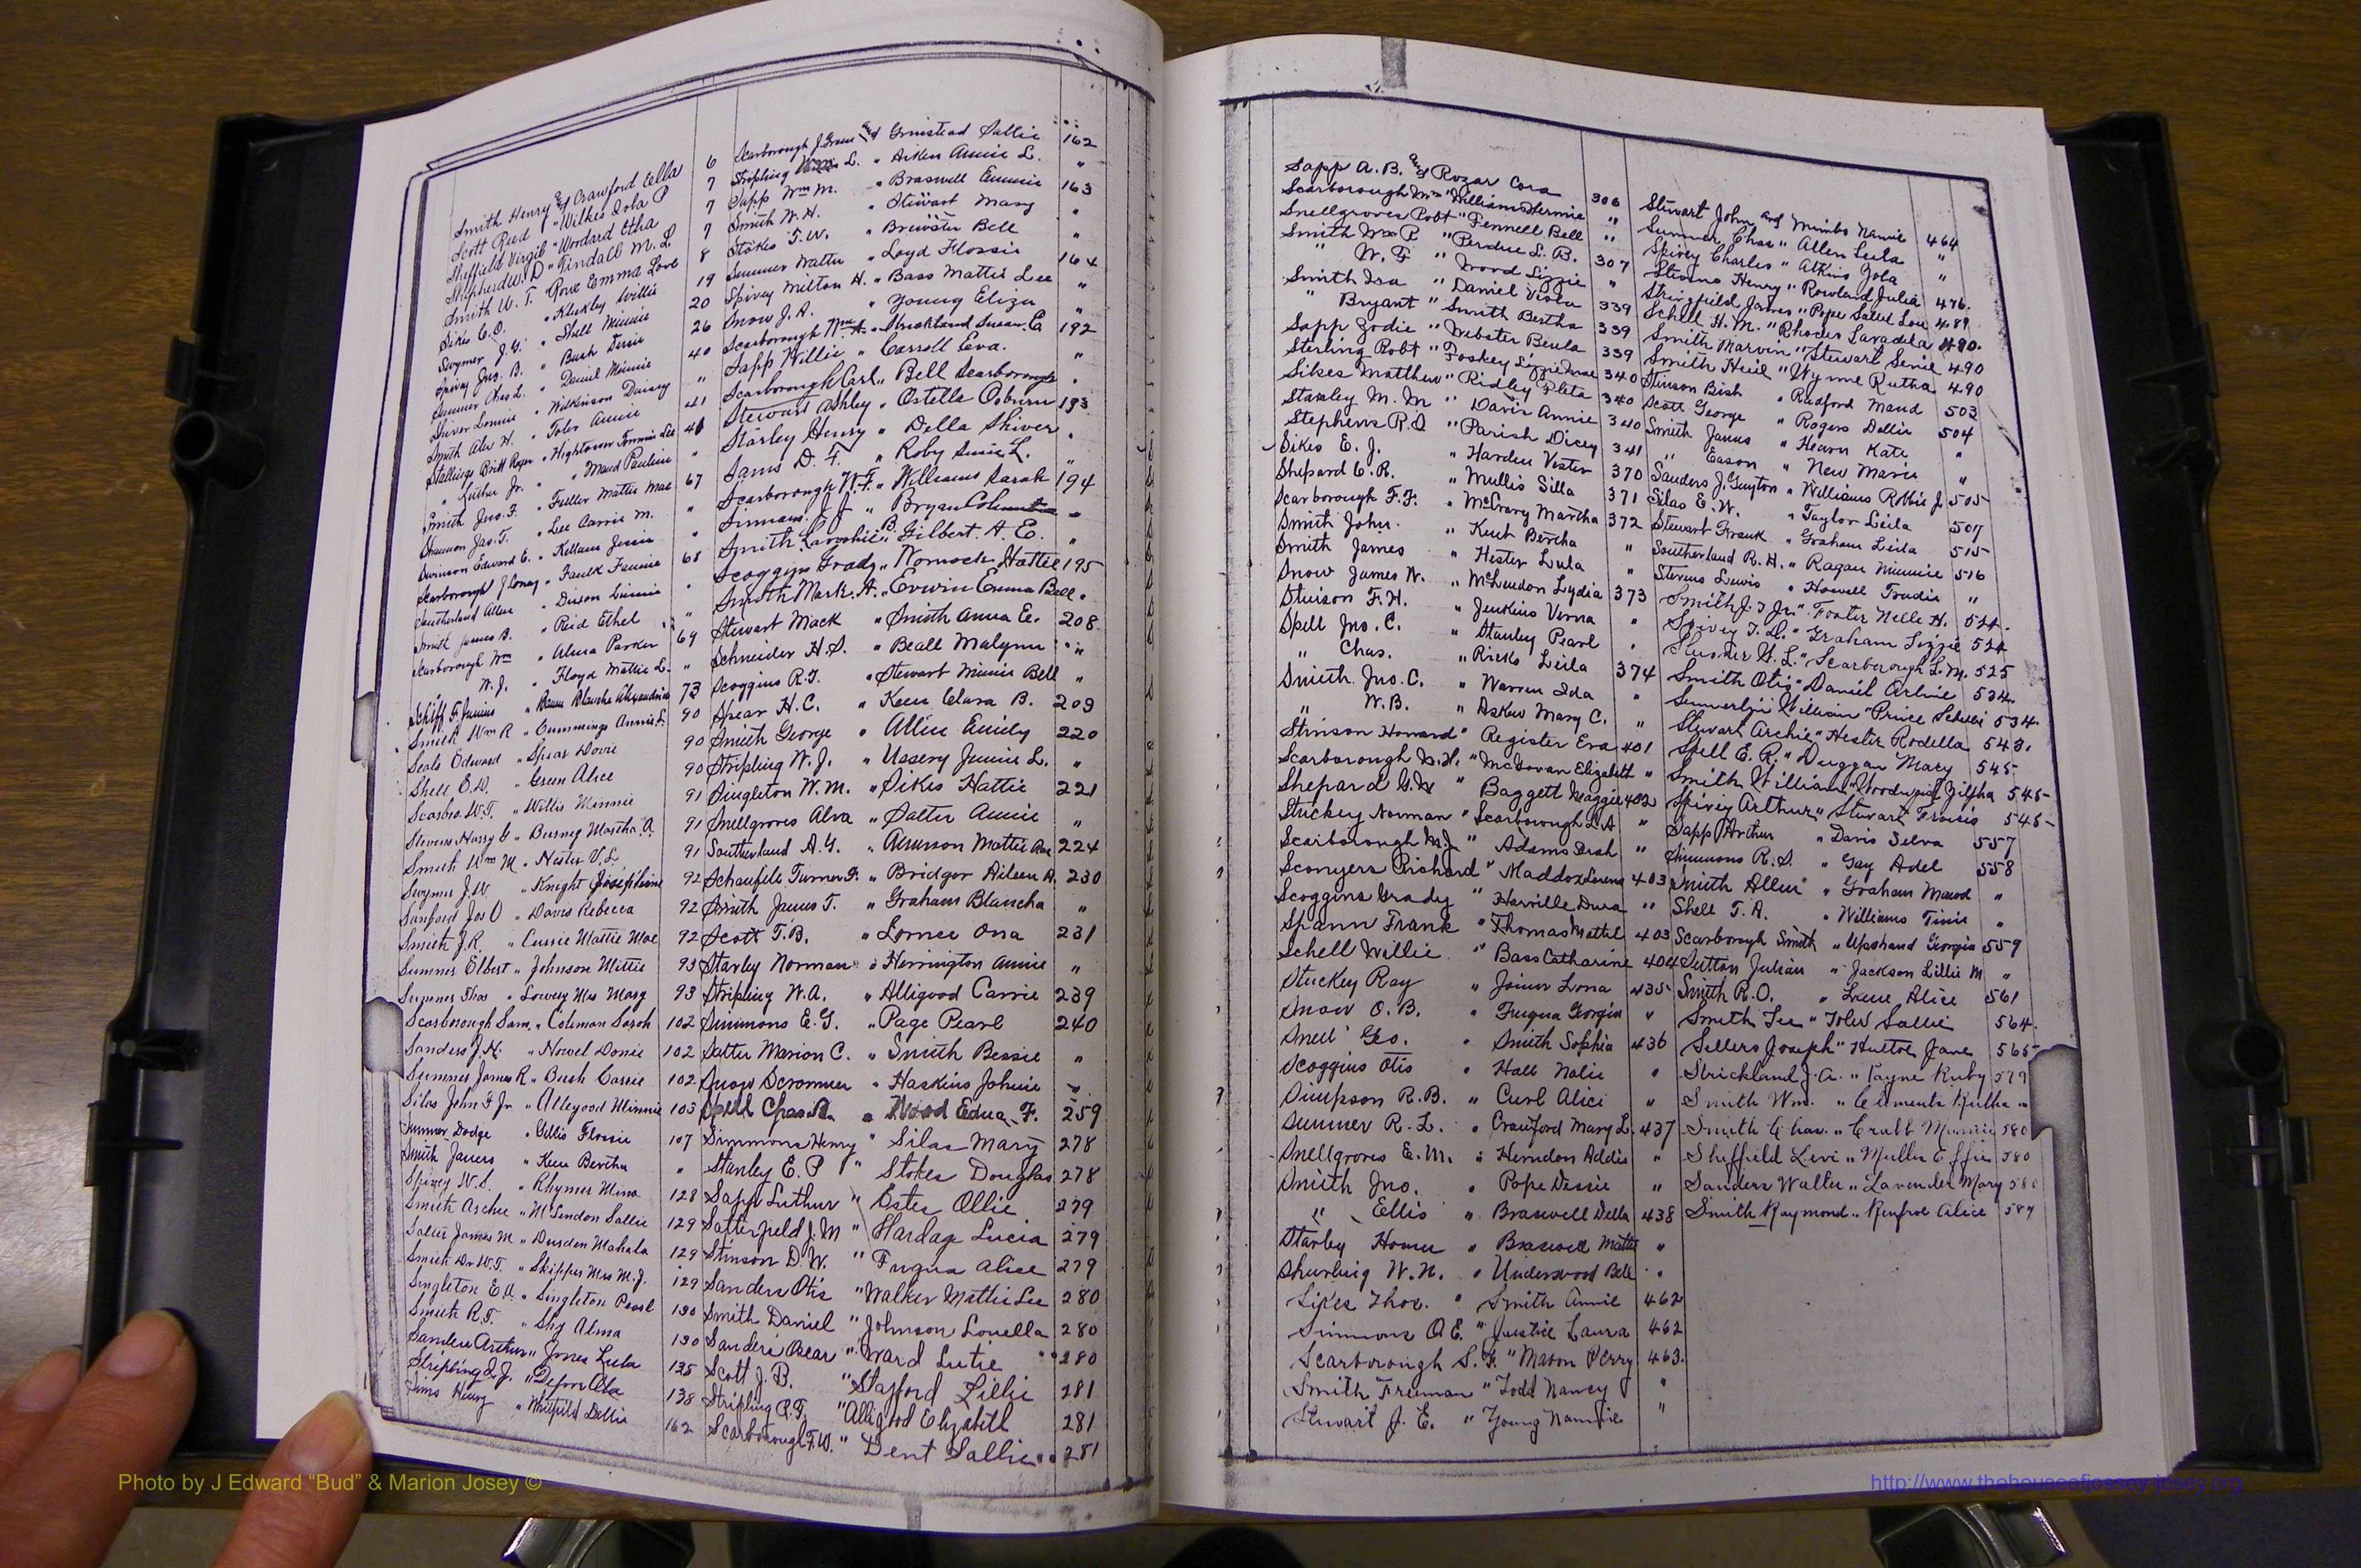 Smith Henry and Crawford Ella 6
Scott Reed " Wilkes Lola P 7
Sheffield Virgil " Woodard Etha 7
Shepherd W. D " Tindall M. L. 7
Smith W. T. " Rowe Emma Love 8
Sikes C. O. " Klukley Willie 19
Swymer J. Y. " Shell Minnie 20
Spivey Jno. B. " Bush Tessie 26
Summer Chas L. " Daniel Minnie 40
Shiver Lonnie " Wilkinson Daisey "
Smith Alex H. " Toler Annie 41
Stallings Britt Roger " Hightower Fannie Lee 41
" Luther Jr. " Maud Pauline "
Smith Jno. F. " Fuller Mattie Mae 67
Shannon Jas. T. " Lee Carrie M. "
Swinson Edward E. " Kellam Jessie "
Scarborough J. Coney " Faulk Fannie 68
Southerland Allen " Dixon Linnie "
Smith James B. " Reid Ethel "
Scarborough Wm " Alma Parker 69
" W. J. " Floyd Mattie L. "
Schiff F. Junius " Blanche Alexandria 73
Smith Wm R " Cummings Annie L. 90
Seals Edward " Spear Dovie 90
Shell E. D. " Green Alice 90
Scarboro. W. T. " Willis Minnie 91
Stevens Harry G " Burney Martha A. 91
Smith Wm M. " Hester V. L. 91
Swymer J. W. " Knight Josephine 92
Sanford Jos O " Davis Rebecca 92
Smith J. R. " Currie Mattie Mae 92
Sumner Elbert " Johnson Mittie 93
Sumner Thos " Lowery Mrs Mary 93
Scarborough Sam. " Coleman Sarah 102
Sanders J. N. " Nowel Donie 102
Sumner James R " Bush Carrie 102
Silas John F Jr " Allegood Minnie 103
Sumner Dodge " Gillis Flossie 107
Smith James " Keen Bertha "
Spivey W. S. " Rhymer Mina 128
Smith Archie " McLendon Sallie 129
Salter James M " Dursden Mahala 129
Smith Dr W. T. " Skipper Mrs M. J. 129
Singleton E. A. " Singleton Pearl 130
Smith R. T. " Shy Alma 130
Sanders Arthur " Jones Lula 135
Stripling J. J. " Defoor Ola 138
Sims Henry " Whitfield Dellie 162
Scarborough J. Evans and Grinstead Sallie 162
Stripling L. " Aiken Annie L. "
Sapp Wm M. " Braswell Emmie 163
Smith W. H. " Stewart Mary "
Stokes T. W. " Brewster Bell "
Summer Walter " Loyd Flossie 164
Spivey Milton H. " Bass Mattie Lee "
Snow J. A. " Young Eliza "
Scarborough Wm A. " Strickland Susan Ca 192
Sapp Willie " Carroll Eva. "
Scarborough Carl " Bell Scarborough "
Stewart Ashley " Ostella Osburn 193
Starley Henry " Della Shiver "
Sams D. F. " Roby Susie L. "
Scarborough W. F. " Williams Sarah 194
Simmons J. J. " Bryan Columbia "
Smith B. Gilbert A. E. "
Scoggins Grady " Nomock Hattie 195
Smith Mark. A. " Erwin Emma Bell "
Stewart Mack " Smith Anna E. 208
Schneider H. S. " Beall Malynn "
Scoggins R. T. " Stewart Minnie Bell "
Spear H. C. " Keen Clara B. 209
Smith George " Allen Emily 220
Stripling W. J. " Ussery Jennie L. "
Singleton W. M. " Sikes Hattie 221
Snellgroves Alva " Salter Annie "
Southerland A. Y. " Amerson Mattie Rae 224
Schaufele Turner F. " Bridger Aileen A. 230
Smith James T. " Graham Blancha "
Scott T. B. " Lornee Ona 231
Starley Norman " Herrington Annie "
Stripling W. A. " Alligood Carrie 239
Simmons E. G. " Page Pearl 240
Salter Marion C. " Smith Bessie "
Snow Scromner " Haskins Johnie "
Spell Chas A. " Wood Edna F. 259
Simmons Henry " Silas Mary 278
Stanley E. P " Stokes Douglas 278
Sapp Luthur " Estes Ollie 279
Satterfield J. M " Hardage Lucia 279
Stinson D. W. " Fuqua Alice 279
Sanders Otis " Walker Mattie Lee 280
Smith Daniel " Johnson Louella 280
Sanders Oscar " Ward Lutie 280
Scott J. B. " Stafford Lillie 281
Stripling C. T. " Alligood Elizabeth 281
Scarborough F. W. " Dent Sallie 281
Sapp A. B. and Rozar Cora 306
Scarborough Wm " Williams Hermie "
Snellgroves Robt " Fennell Bell "
Smith Wm P " Perdue L. B. 307
" W. F " Wood Lizzie "
Smith Ira " Daniel Viola 339
" Bryant " Smith Bertha 339
Sapp Zodie " Webster Beula 339
Sterling Robt " Foskey Lizzie Mae 340
Sikes Matthew " Ridley Pleta 340
Stanley M. M " Davis Annie 340
Stephens R. D " Parish Dicey 341
Sikes E. J. " Harden Vester 370
Shepard C. R. " Mullis Silla 371
Scarborough F. F. " McCrary Martha 372
Smith John. " Kent Bertha "
Smith James " Hester Lula "
Snow James W. " McLendon Lydia 373
Stinson F. H. " Jenkins Verna "
Spell Jno. C. " Stanley Pearl "
" Chas. " Ricks Leila 374
Smith Jno. C. " Warren Ida "
" W. B. " Askew Mary C. "
Stinson Howard " Register Eva 401
Scarborough D. H. " McGowan Elizabeth "
Shepard G. W " Baggett Maggie 402
Stuckey Norman " Scarborough L. A "
Scarborough M. J. " Adams Leah "
Sconyers Richard " Maddox Lorena 403
Scoggins Grady " Harville Dura "
Spann Frank " Thomas Mattie 403
Schell Willie " Bass Catharine 404
Stuckey Ray " Joiner Lona 435
Snow O. B. " Fuqua Georgia "
Snell Geo. " Smith Sophia 436
Scoggins Otis " Hall Nolie "
Simpson R. B. " Curl Alice "
Sumner R. L. " Crawford Mary L. 437
Snellgroves E. M. " Herndon Addie "
Smith Jno. " Pope Dessie "
" Ellis " Braswell Della 438
Starley Homer " Braswell Mattie "
Shurling W. N. " Underwood Bell "
Sikes Thos. " Smith Annie 462
Simmons O E. " Justice Laura 462
Scarborough S. F. " Mason Perry 463.
Smith Freeman " Todd Nancy "
Stewart J. E. " Young Nannie "
Stewart John and Mimbs Nannie 464
Summer Chas " Allen Leila "
Spivey Charles " Atkins Zola "
Stevens Henry " Rowland Julia 476.
Stringfield James " Pope Sallie Lou 489
Schell H. M. " Rhodes Lavadela 490.
Smith Marvin " Stewart Senie 490
Smith Heil " Wynne Rutha 490
Stinson Bish " Radford Maud 503
Scott George " Rogers Dollie 504
Smith James " Hearn Kate "
" Eason " New Marie "
Sanders J. Guyton " Williams Robbie J. 505
Silas E. W. " Taylor Leila 507
Stewart Frank " Graham Leila 515
Southerland R. H. " Ragan Minnie 516
Stevens Lewis " Howell Trudie "
Smith J. T Jr. " Foster Nelle H. 524.
Spivey T. D. " Graham Lizzie 524
G. L. " Scarborough L. M. 525
Smith Otis " Daniel Arline 534.
Summerlin William " Prince 534.
Stewart Archie " Hester Rodella 543.
Spell E. R. " Duggan Mary 545
Smith William " Woodward Zilpha 545
Spivey Arthur " Stewart Frosie 545
Sapp Arthur " Davis Selva 557
Simmons R. S. " Gay Adel 558
Smith Allen " Graham Maud "
Shell T. A. " Williams Tinie "
Scarborough Smith " Upshand Georgia 559
Sutton Julian " Jackson Lillie M "
Smith R. O. " Lane Alice 561
Smith Lee " Toler Sallie 564.
Sellers Joseph " Hutton Jane 565
Strickland J. A. " Payne Ruby 579
Smith Wm. " Clements Rutha "
Smith Chas. " Crabb Minnie 580
Sheffield Levi " Mullis Effie 580
Sanders Walter " Lavender Mary 580
Smith Raymond " Renfroe Alice 587
Photo by J Edward “Bud” & Marion Josey ©
http://www.thehouseofjossey-josey.org